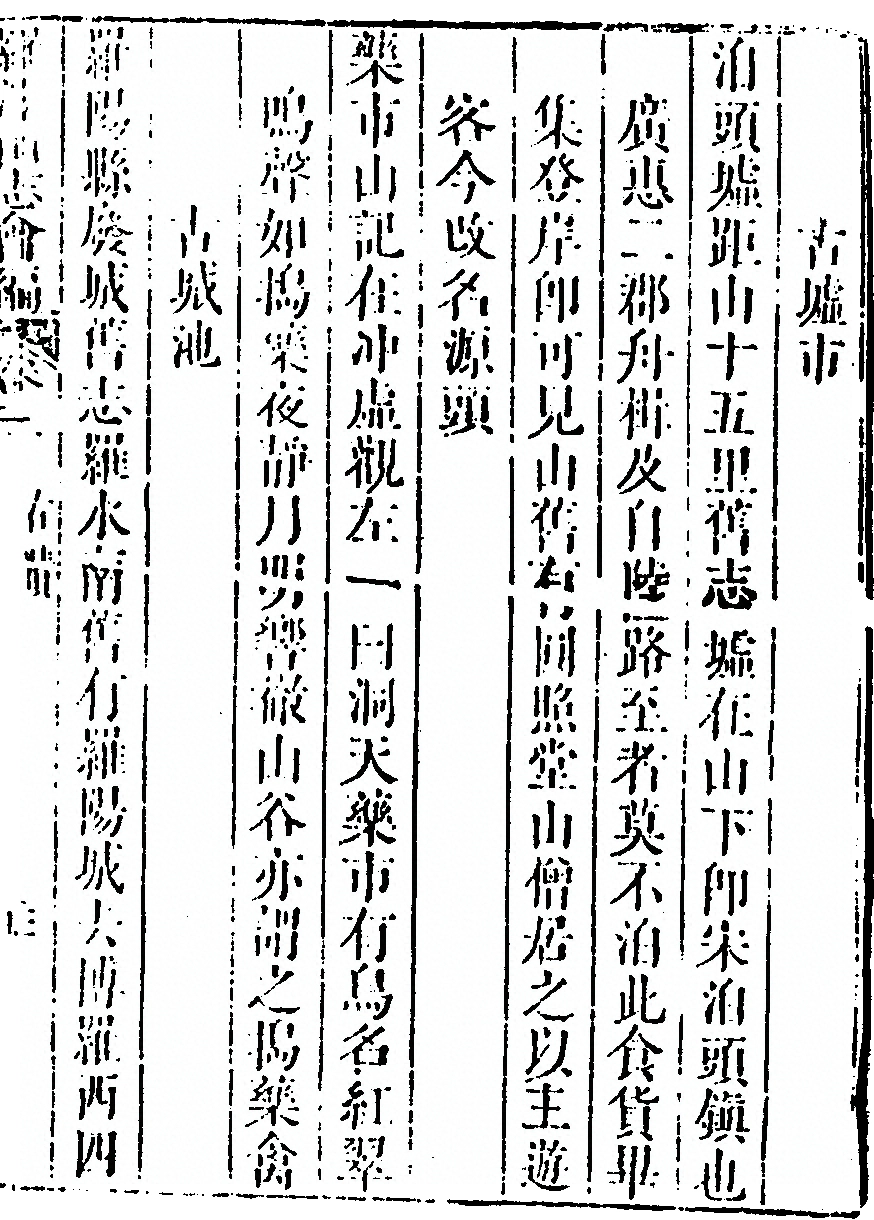 古墟市
泊頭墟距山十五里舊志墟在山下卽宋泊頭鎮也
廣惠二郡舟楫及自陸路至者莫不泊此食貨畢
集登岸卽可見山舊有同照堂山僧居之以主遊
客今改名源頭
藥市山記在冲虛觀左一曰洞天藥市有鳥名紅翠
鳴聲如搗藥夜靜月明響徹山谷亦謂之搗藥禽
古城池
羅陽縣廢城舊志羅水南舊有羅陽城去博羅西四
志會編 卷